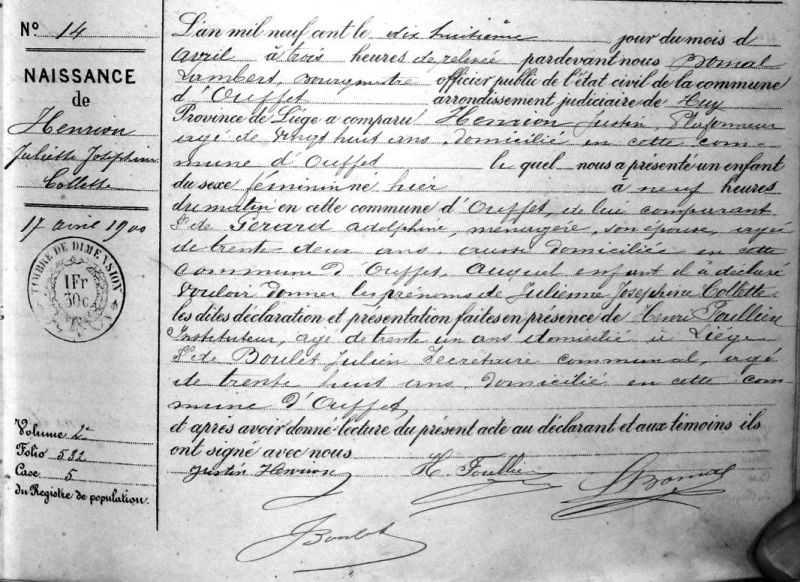 N° 14
NAISSANCE
de
Henrion
Juliette Josephine
Collette
17 avril 1900
TIMBRE DE DIMENSION
1Fr
30c
Volume 2e
Folio 532
Case 5
du Registre de population.
L'an mil neuf cent le dix huitième jour du mois d
avril à trois heures de relevée pardevant nous Bomal
Lambert, bourgmestre officier public de l'état civil de la commune
d'Ouffet arrondissement judiciaire de Huy
Province de Liége a comparu Henrion Justin, Plafonneur
agé de vingt huit ans, domicilié en cette com-
mune d'Ouffet le quel nous a présenté un enfant
du sexe féminin né hier à neuf heures
du matin en cette commune d'Ouffet, de lui comparant
& de Gérard Adolphine, ménagère, son épouse, agée
de trente deux ans, aussi domiciliée en cette
commune d'Ouffet, auquel enfant il a déclaré
vouloir donner les prénoms de Julienne Josephine Collette
les dites déclaration et présentation faites en présence de Henri
Instituteur, agé de trente un ans domicilié à Liège
& de Boulet Julien Secrétaire communal, agé
de trente huit ans, domicilié en cette com-
mune d'Ouffet
et après avoir donné lecture du présent acte au déclarant et aux témoins ils
ont signé avec nous
Justin Henrion
H.
L Bomal
J Boulet